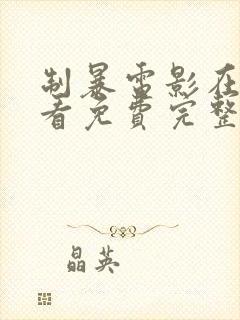 制暴雷影在
看免费完整
晶英